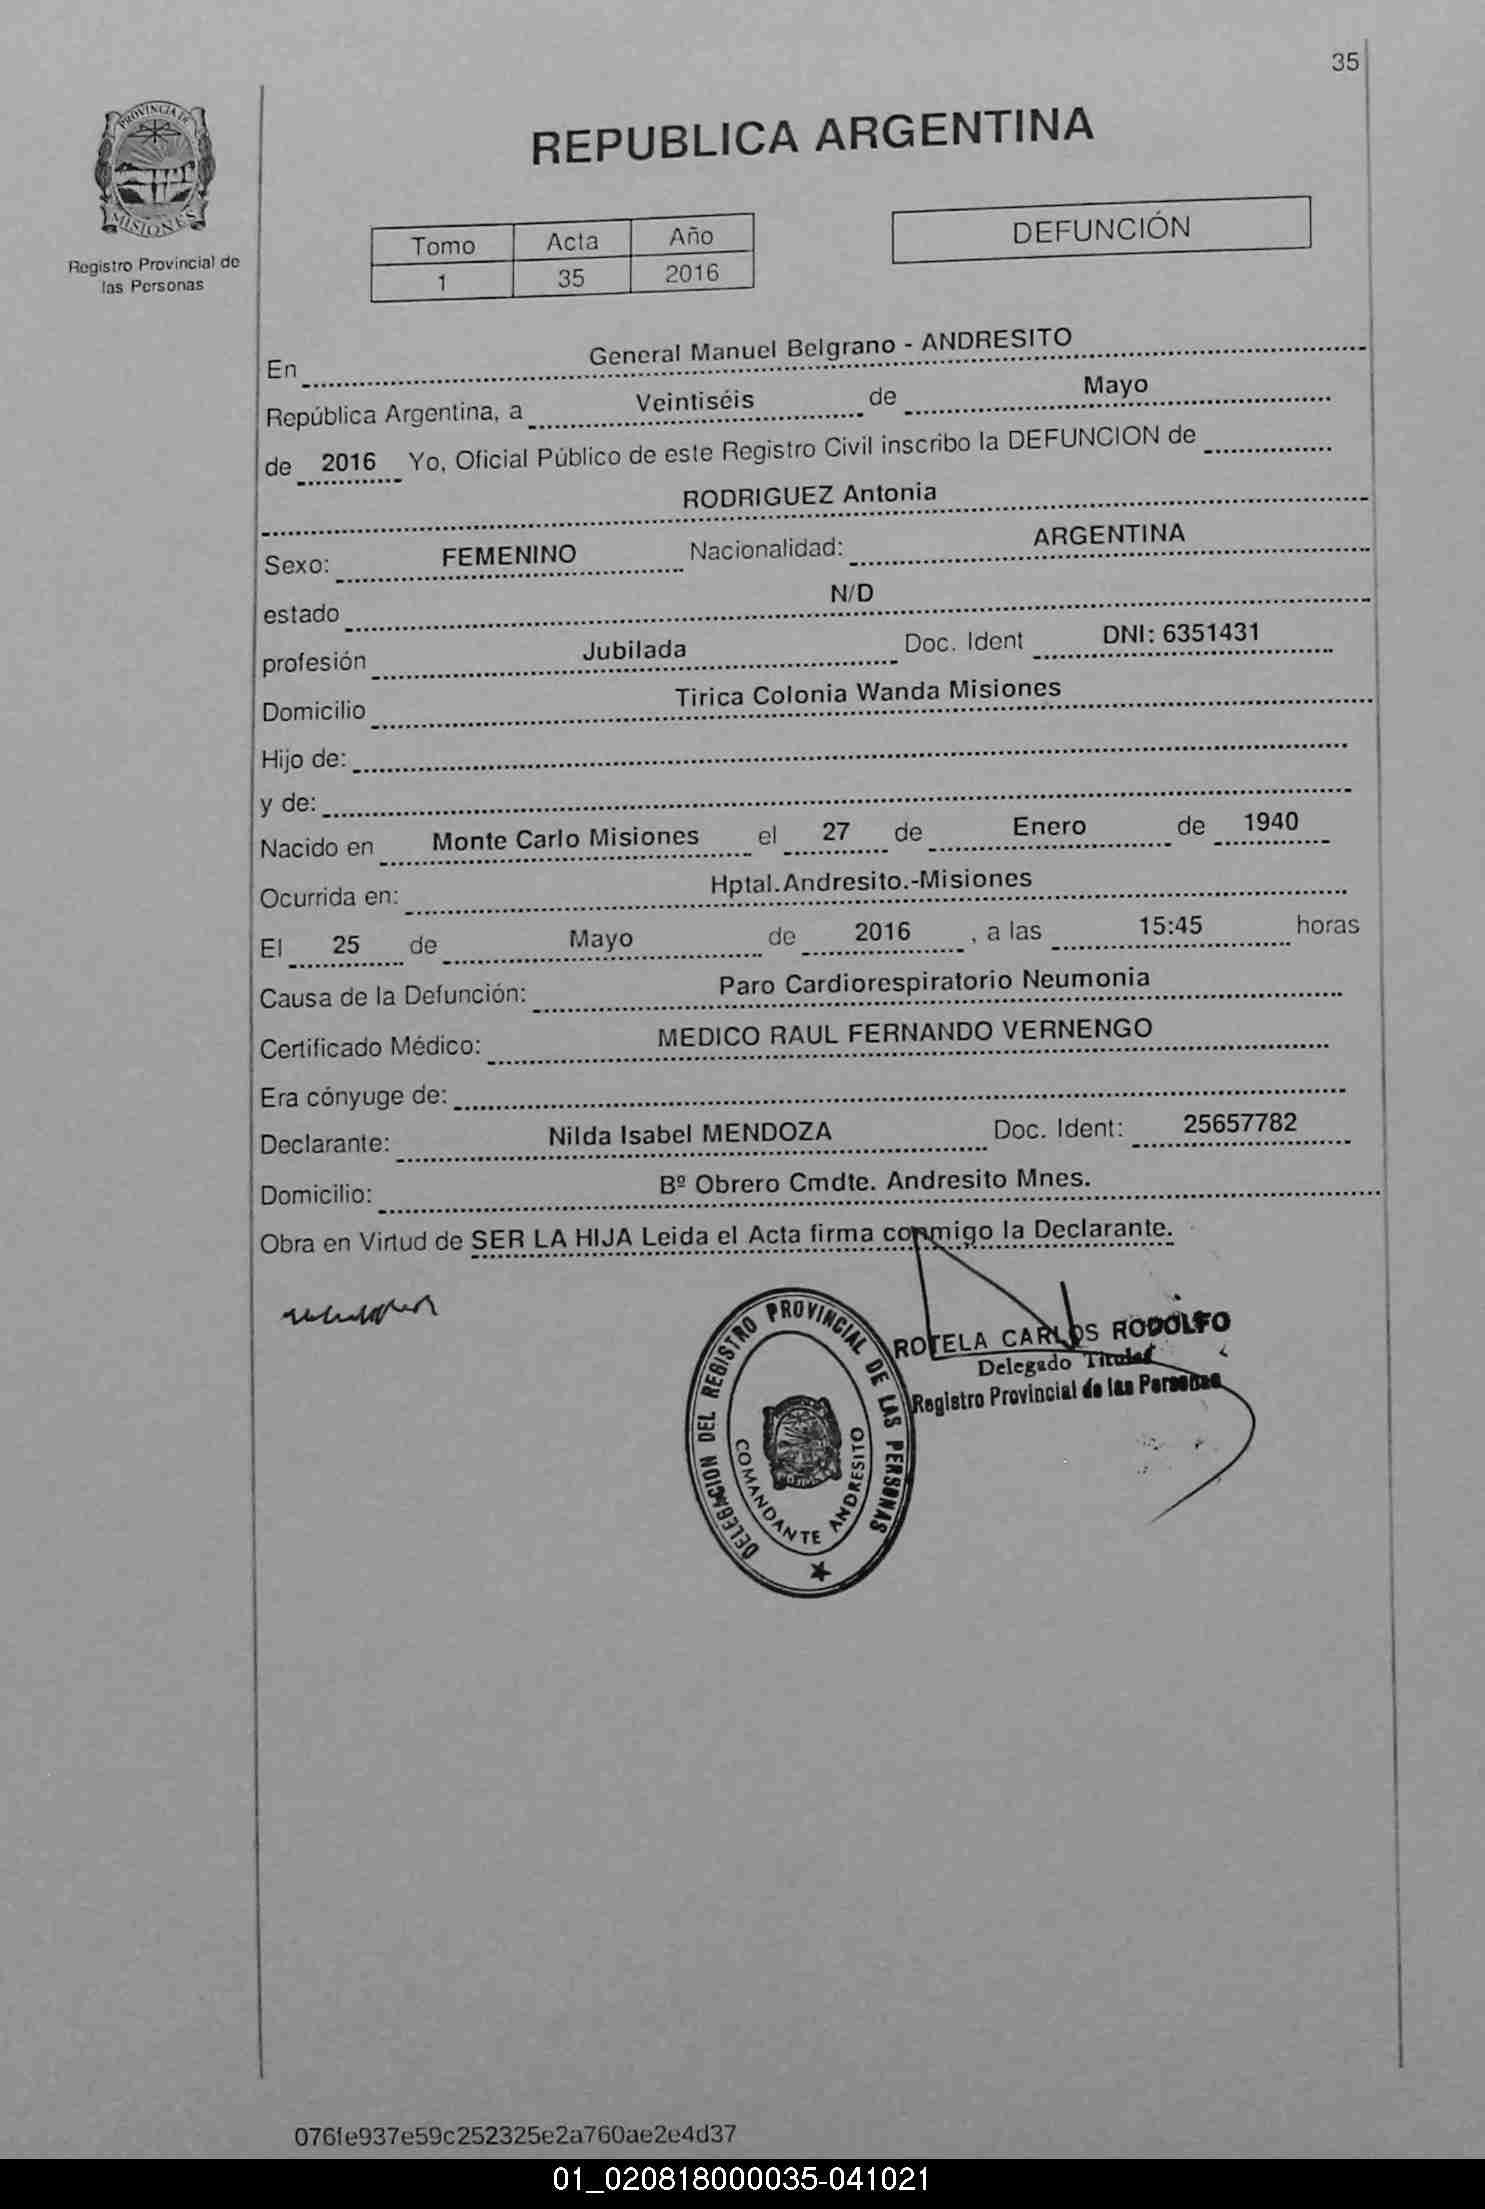 35
PROVINCIA DE
MISIONES
Registro Provincial de
las Personas
REPUBLICA ARGENTINA
Tomo Acta Año
1 35 2016
DEFUNCIÓN
En General Manuel Belgrano - ANDRESITO
República Argentina, a Veintiséis de Mayo
de 2016 Yo, Oficial Público de este Registro Civil inscribo la DEFUNCION de
RODRIGUEZ Antonia
Sexo: FEMENINO Nacionalidad: ARGENTINA
estado N/D
profesión Jubilada Doc. Ident DNI: 6351431
Domicilio Tirica Colonia Wanda Misiones
Hijo de:
y de:
Nacido en Monte Carlo Misiones el 27 de Enero de 1940
Ocurrida en: Hptal.Andresito.-Misiones
El 25 de Mayo de 2016 , a las 15:45 horas
Causa de la Defunción: Paro Cardiorespiratorio Neumonia
Certificado Médico: MEDICO RAUL FERNANDO VERNENGO
Era cónyuge de:
Declarante: Nilda Isabel MENDOZA Doc. Ident: 25657782
Domicilio: Bº Obrero Cmdte. Andresito Mnes.
Obra en Virtud de SER LA HIJA Leida el Acta firma conmigo la Declarante.
DELEGACION DEL REGISTRO PROVINCIAL DE LAS PERSONAS
COMANDANTE ANDRESITO
ROTELA CARLOS RODOLFO
Delegado Titular
Registro Provincial de las Personas
076fe937e59c252325e2a760ae2e4d37
01_020818000035-041021